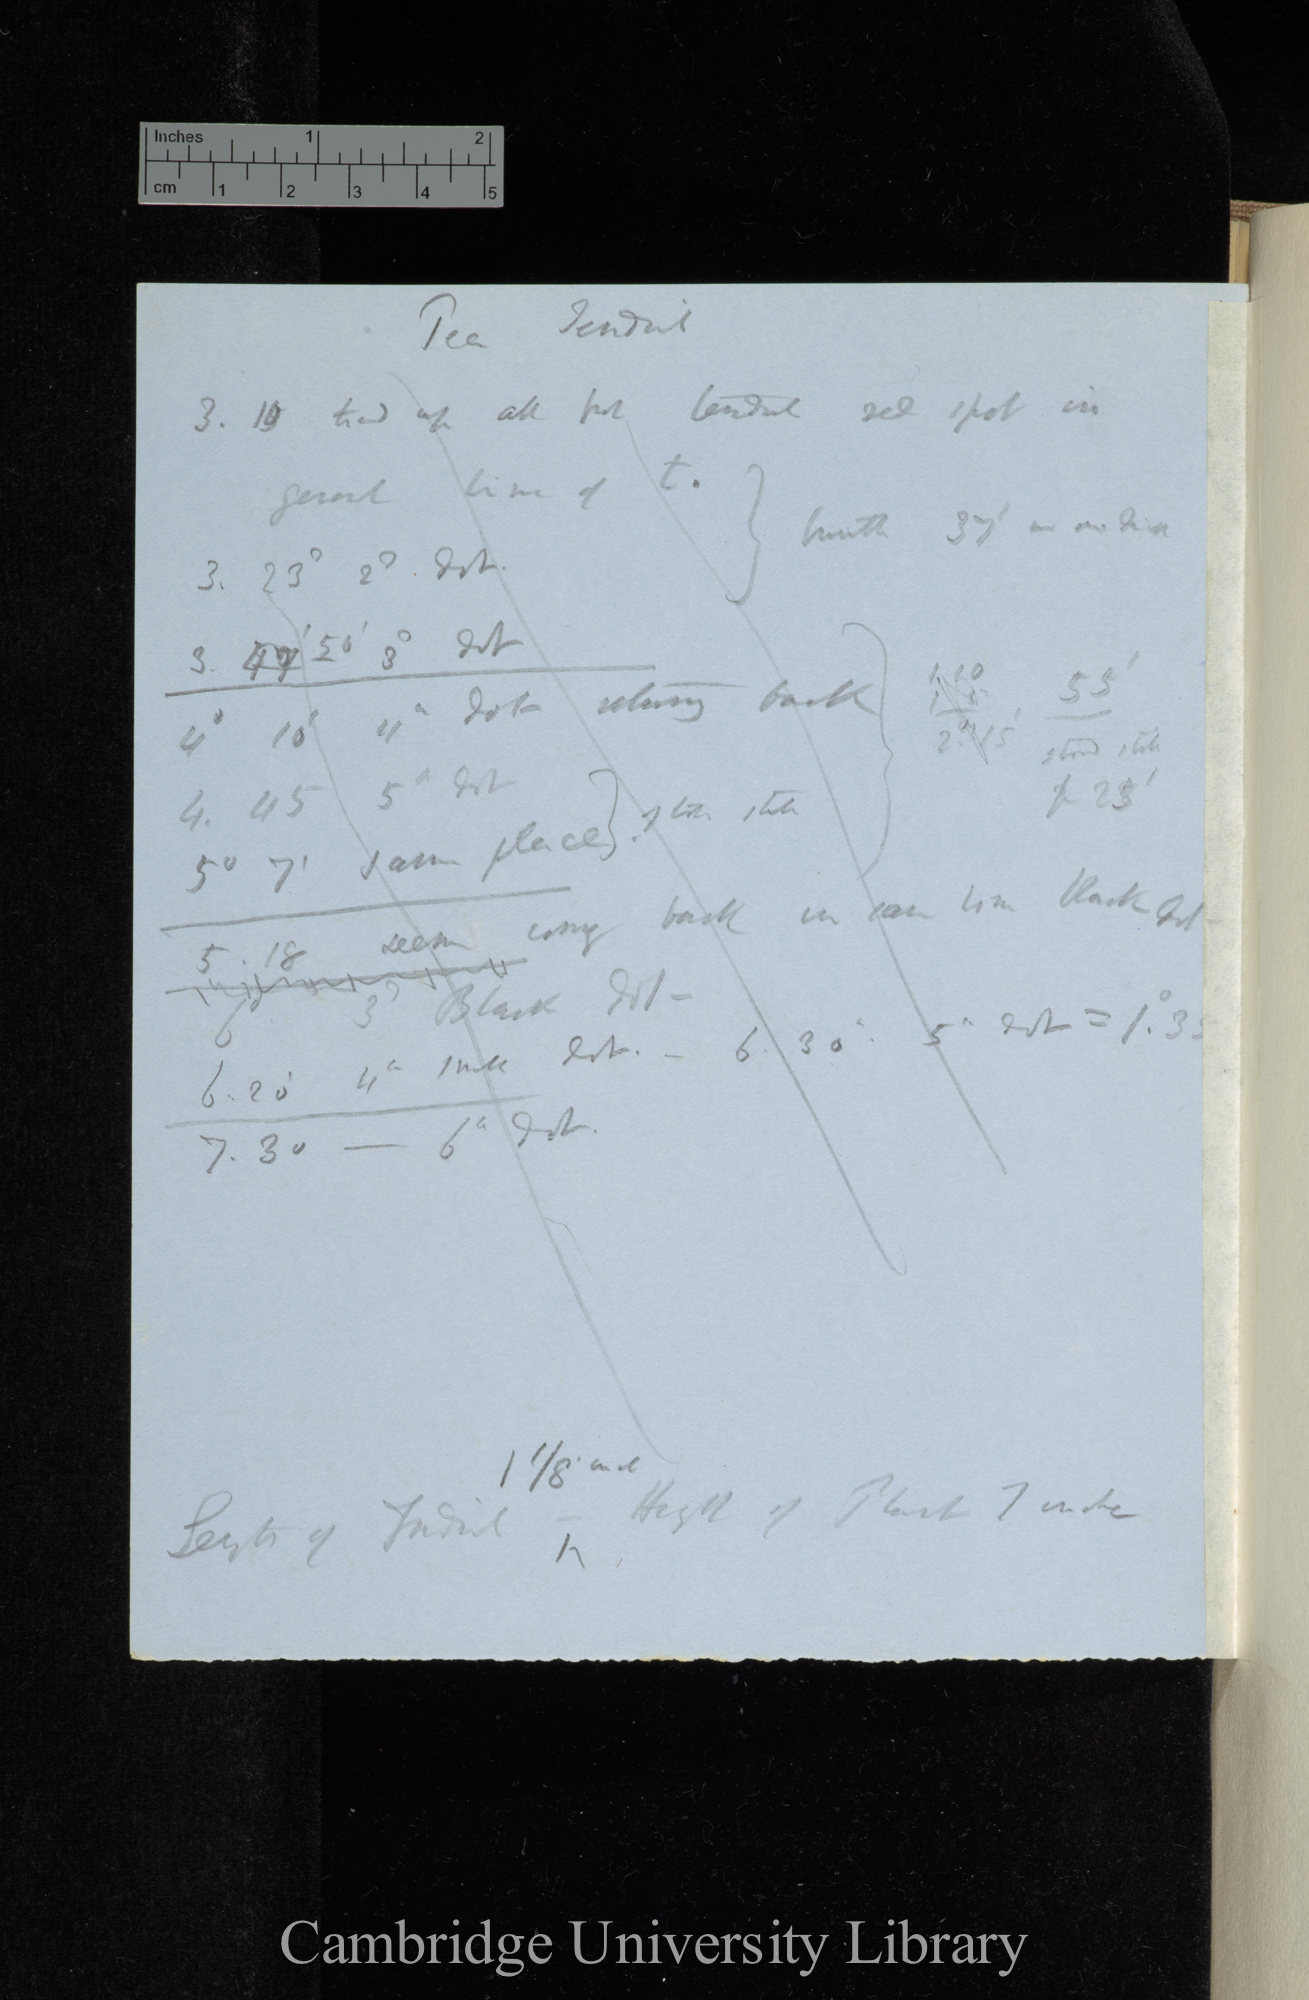 Inches 1 2
cm 1 2 3 4 5
Pea Tendril
3. 10 tied up all but tendril red spot in
general line of t.
37'
3. 23° 2° dot.
3. 50' 3° dot
4° 10' 4th dot returning back
55'
stood still
23'
4. 45 5th dot
5° 7' same place } stood still
5. 18 seem coming back in same line black dot
6° 3° Black dot –
6. 20' 4th dot. – 6. 30'. 5th dot = 1°. 35
7. 30 — 6th dot.
1 1/8 inch
Length of Tendril – Height of Plant 7 inches
Cambridge University Library